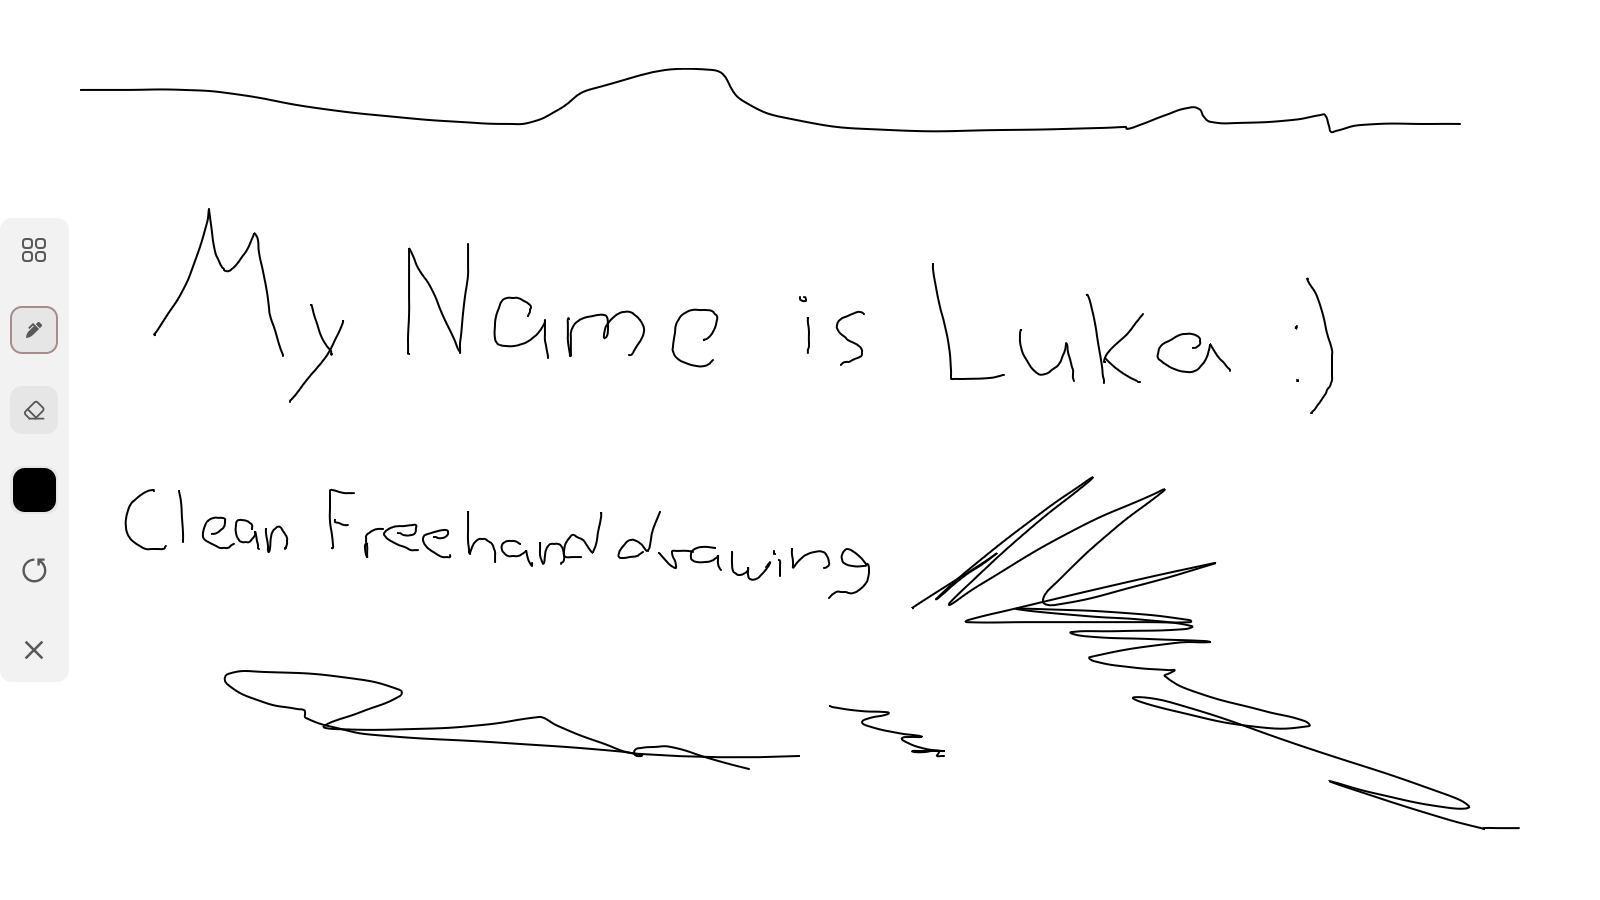 My Name is Luka :)
Clean Freehand drawing